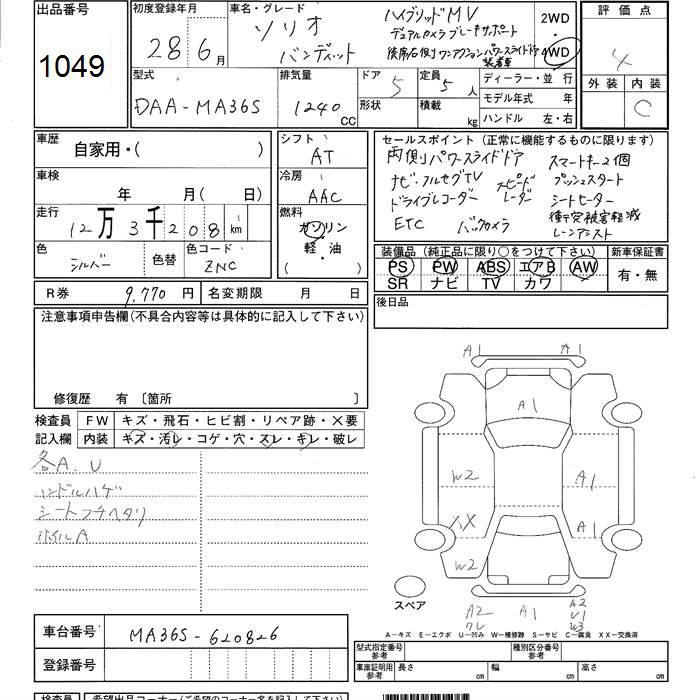 出品番号
1049
初度登録年月
28 6月
車名・グレード
ソリオ
バンディット
ハイブリッドMV
デュアルカメラブレーキサポート
後席右側ワンアクションパワースライドドア
装着車
2WD
4WD
評価点
4
外装 内装
C
型式
DAA-MA36S
排気量
1240
CC
ドア
5
形状
定員
5人
積載
kg
ディーラー・並行
モデル年式 年
ハンドル 左・右
車歴
自家用・( )
車検
年 月( 日)
走行
12万3千208 km
色
シルバー
色替
色コード
ZNC
シフト
AT
冷房
AAC
燃料
ガソリン
軽・油
( ・ )
セールスポイント (正常に機能するものに限ります)
両側パワースライドドア スマートキー2個
ナビ・フルセグTV スピード プッシュスタート
ドライブレコーダー レーダー シートヒーター
ETC バックカメラ 衝突被害軽減
レーンアシスト
装備品 (純正品に限り○をつけて下さい)
PS PW ABS エアB AW
SR ナビ TV カワ
新車保証書
有・無
R券 9,770円
名変期限 月 日
後日品
注意事項申告欄(不具合内容等は具体的に記入して下さい)
修復歴 有 〔箇所 〕
検査員
記入欄
FW キズ・飛石・ヒビ割・リペア跡・×要
内装 キズ・汚レ・コゲ・穴・スレ・キレ・破レ
各A、U
ハンドルハゲ
シートフチヘタリ
ホイルA
A1 A1
A1
W2 A1
A1
W2
スペア
A2 A1 A2
U1
W3
A-キズ E-エクボ U-凹み W-補修跡 S-サビ C-腐食 XX-交換済
車台番号
MA36S-620826
登録番号
型式指定番号
参考
種別区分番号
参考
車庫証明用
参考
長さ cm
幅 cm
高さ cm
検査員
希望出品コーナー(ご希望のコーナー名を記入して下さい)